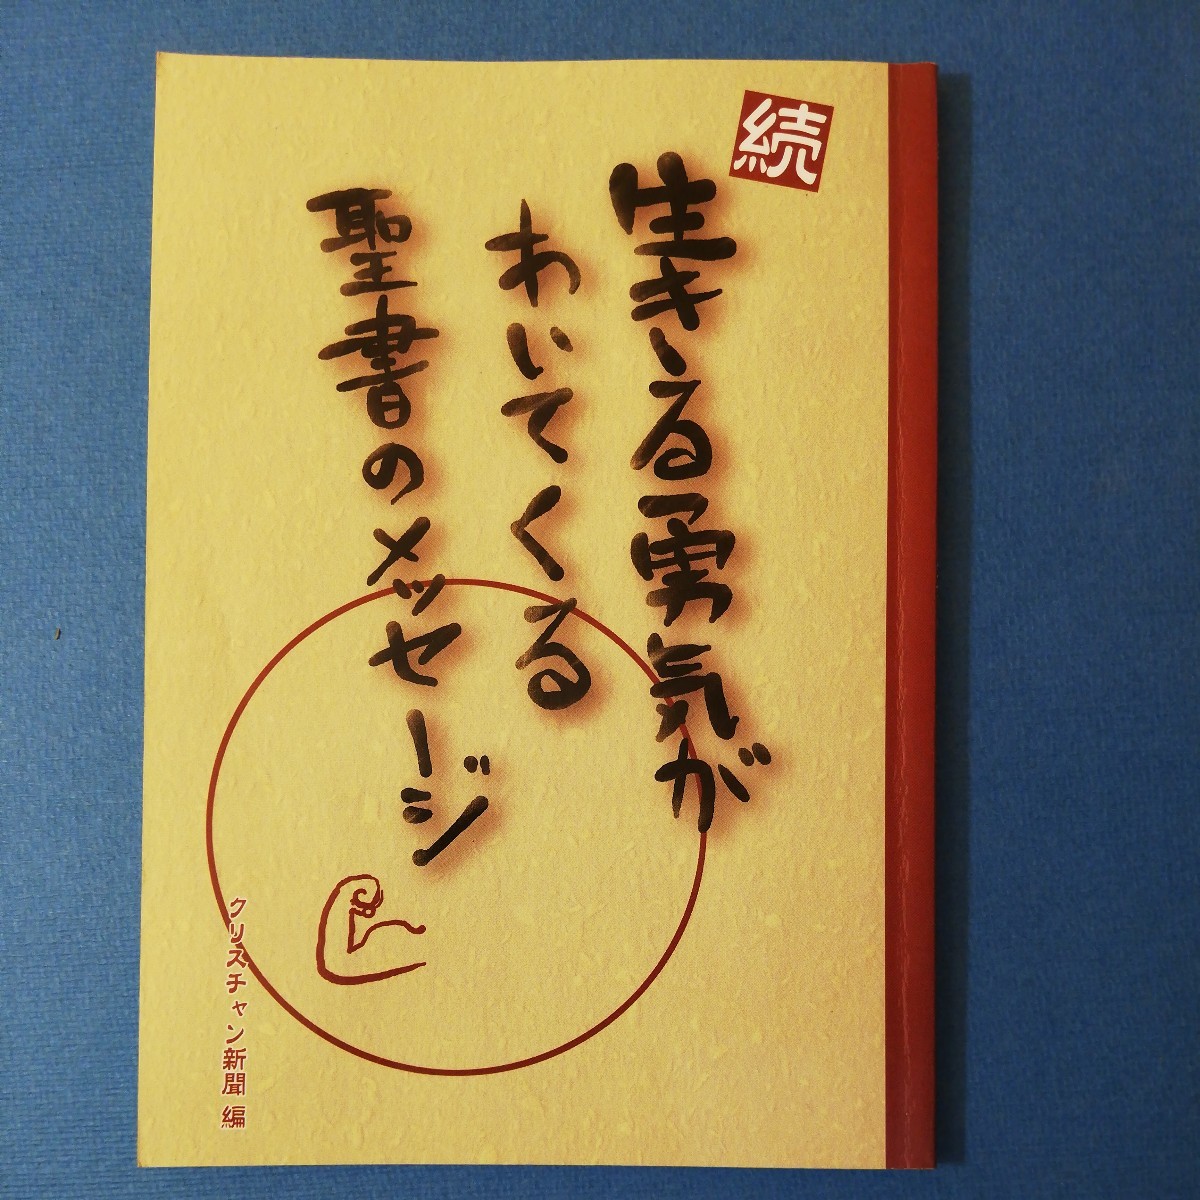 続
生きる勇気が
わいてくる
聖書のメッセージ
クリスチャン新聞 編